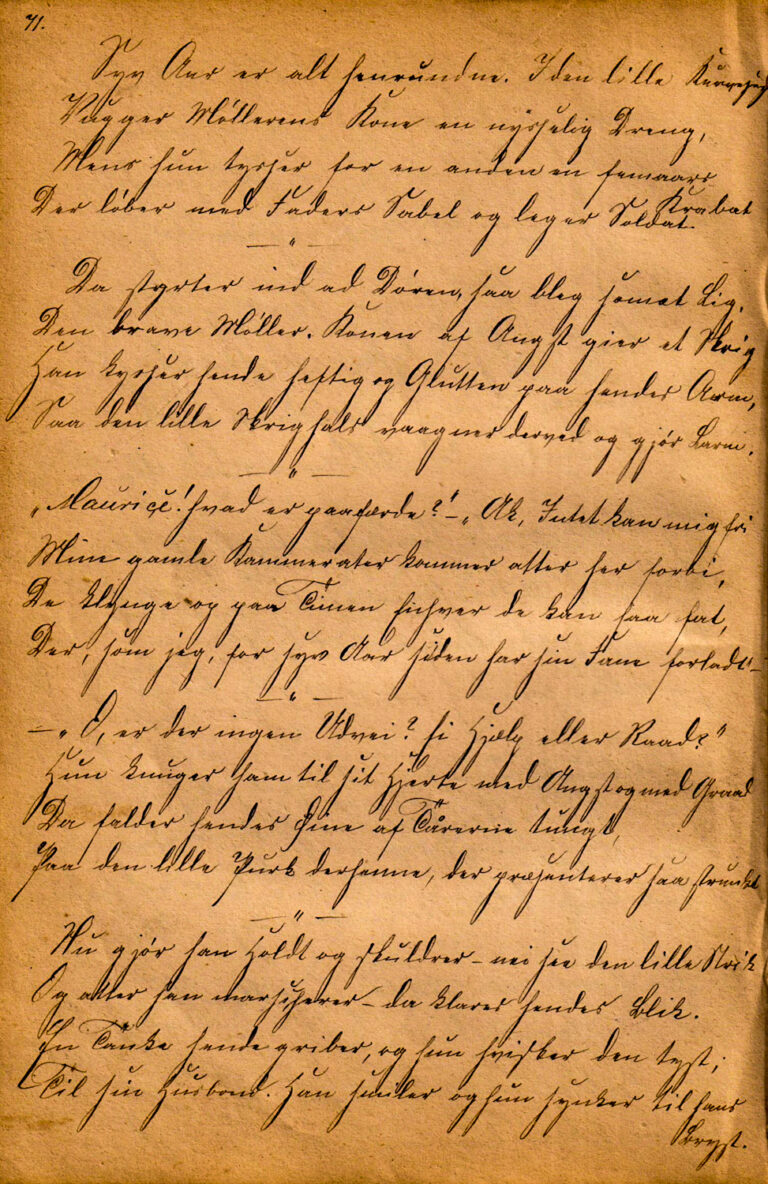 71.
Syv Aar er alt henrundne. I den lille
Vugger Møllerens Kone en nysselig Dreng,
Mens hun tysser for en anden en femaars
Krabat
Der løber med Faders Sabel og leger Soldat.
— " —
Da styrter ind ad Døren, saa bleg som et Lig,
Den brave Møller. Konen af Angst gier et Skrig
Han kysser hende heftig og Glutten paa hendes Arm,
Saa den lille Skrighals vaagner derved og gjør Larm.
— " —
„Maurice! hvad er paafærde?" – „Ak, Intet kan mig fri
Mine gamle Kammerater kommer atter her forbi,
De klynge op paa Timen Enhver de kan faa fat,
Der, som jeg, for syv Aar siden har sin Fane forladt" –
— " —
– „O, er der ingen Udvei? Ei Hjælp eller Raad?"
Hun knuger ham til sit Hjerte med Angst og med Graad
Da falder hendes Øine af Tårerne tungt,
Paa den lille Purk derhenne, der præsenterer saa strunkt
— " —
Nu gjør han Holdt og skuldrer – nei see den lille Strik
Og atter han marscherer – da klares hendes Blik.
En Tanke hende griber, og hun hvisker den tyst,
Til sin Husbond. Han smiler og hun synker til hans
Bryst.